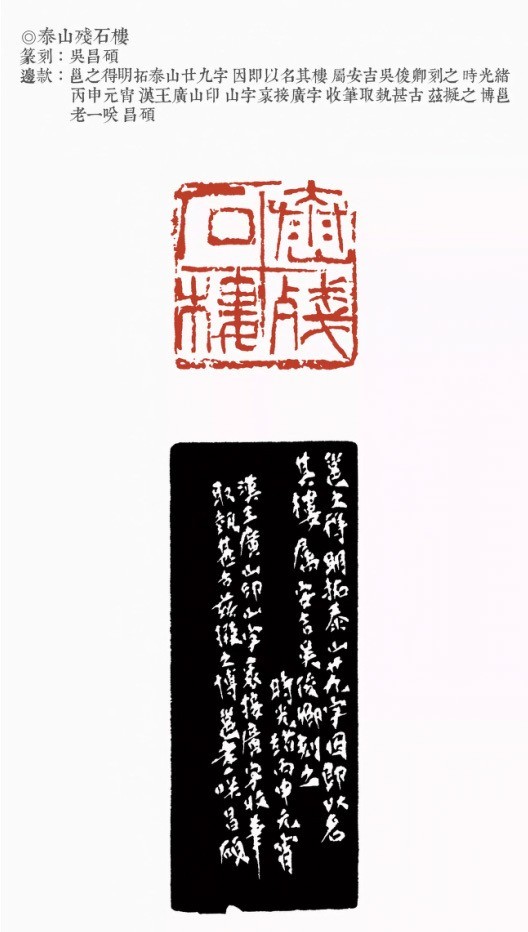 ◎泰山殘石樓
篆刻：吳昌碩
邊款：邕之得明拓泰山廿九字 因即以名其樓 屬安吉吳俊卿刻之 時光緒
丙申元宵 漢王廣山印 山字裒接廣字 收筆取埶甚古 茲擬之 博邕
老一咲 昌碩
泰山殘
石樓
邕之得明拓泰山廿九字因即以名
其樓 屬安吉吳俊卿刻之
時光緒丙申元宵
漢王廣山印山字裒接廣字收筆
取埶甚古茲擬之博邕老一咲昌碩